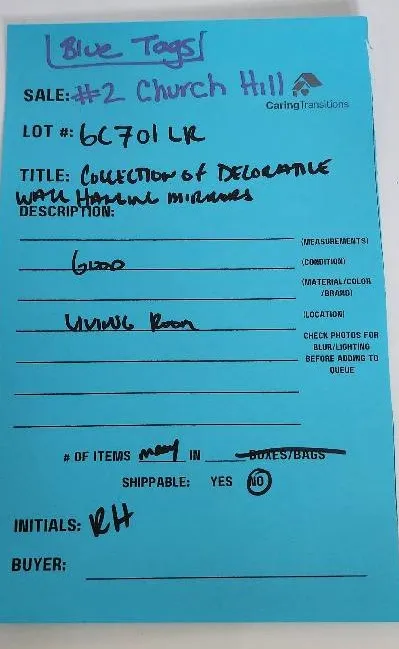 Blue Tags
SALE: #2 Church Hill
CaringTransitions
LOT #: 6C701 LR
TITLE: COLLECTION OF DECORATIVE
WALL HANGING MIRRORS
DESCRIPTION:
(MEASUREMENTS)
GOOD (CONDITION)
(MATERIAL/COLOR
/BRAND)
LIVING ROOM (LOCATION)
CHECK PHOTOS FOR
BLUR/LIGHTING
BEFORE ADDING TO
QUEUE
# OF ITEMS many IN BOXES/BAGS
SHIPPABLE: YES NO
INITIALS: RH
BUYER: